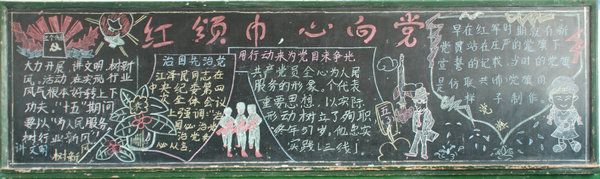 红领巾,心向党
大力开展 讲文明 树新
风。活动,在实现行业
风气根本好转上下
功夫。"十五"期间
要以"为人民服务,
树行业新风"
讲文明 树新风
治国先治党
江泽民同志在
中央纪委第四
全体会议
上强调"治
国必治党
治党
必从严
用行动来为党日来争光
共产党员全心为人民
服务的形象。个代表
重要思想。以实际
形动树立了殉职
每年51岁,他忠实
实践"三线"!
早在红军时期
党留站在庄严的党旗下
宣誓的记载。当时的党旗
是仿联共
样子制作。